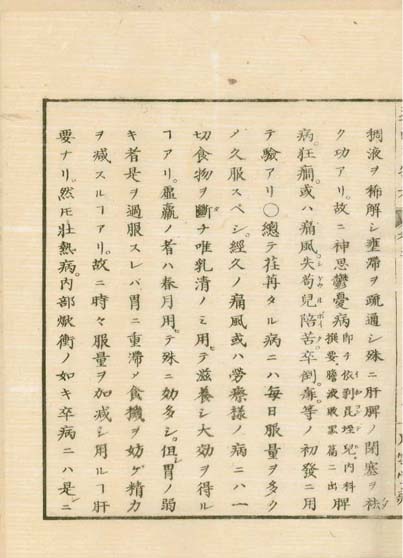 稠液ヲ稀解シ壅滞ヲ疏通シ殊ニ肝脾ノ閉塞ヲ祛
ク功アリ。故ニ神思鬱憂病
即チ依剥昆垤兒内科
撰要膽液敗黒篇ニ出
脾
病。狂癇。或ハ痛風。失苟兒陪苦。卒倒。痱等ノ初發ニ用
テ驗アリ〇總テ荏苒タル病ニハ毎日服量ヲ多ク
〆久服スベシ。經久ノ痛風或ハ勞瘵様ノ病ニハ一
切食物ヲ斷チ唯乳清ノミ用テ滋養シ大効ヲ得ル
ヿアリ。虚羸ノ者ハ春月用テ殊ニ効多シ。但シ胃ノ弱
キ者是ヲ過服スレバ胃ニ重滞〆食機ヲ妨ゲ精力
ヲ减スルヿアリ。故ニ時々服量ヲ加减シ用ルヿ肝
要ナリ。然𪜈壮熱病。内部焮衝ノ如キ卒病ニハ是ニ